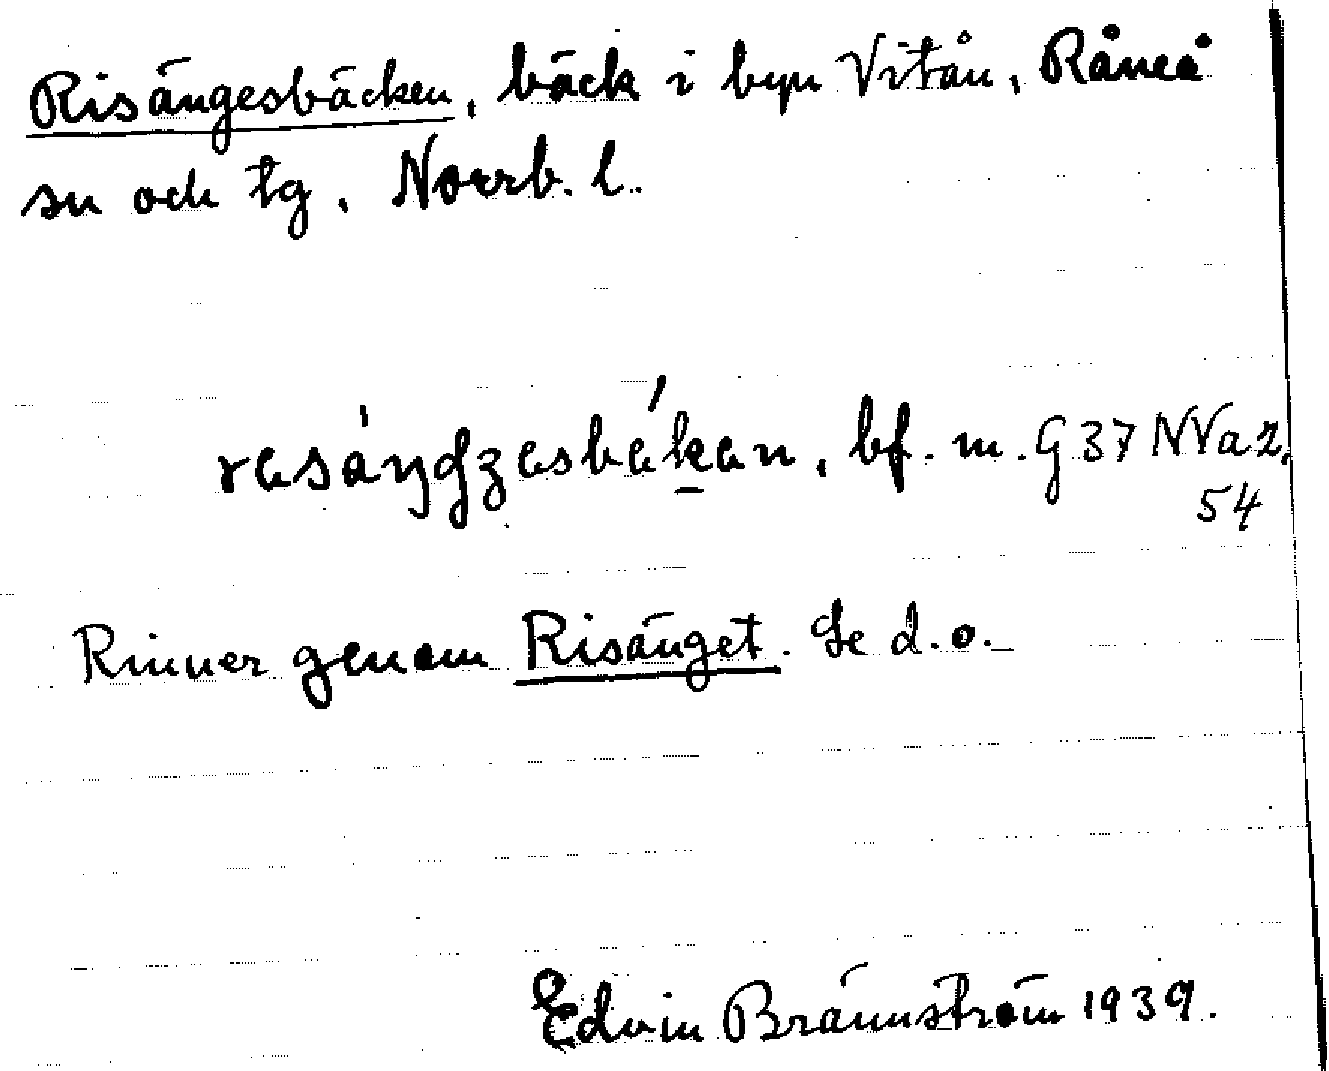 Risängesbäcken, bäck i byn Vitån, Råneå
sn och tg, Norrb. l.
bf. m. G 37 NVa 2,
54
Rinner genom Risänget. Se d.o.
Edvin Brännström 1939.